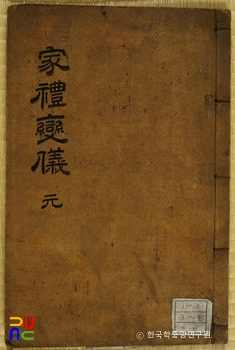 家禮變儀 元
PUAC
© 한국학중앙연구원